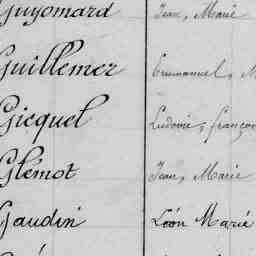 Guyomard Jean, Marie
Guillemer Emmanuel, M
Gicquel Ludovic, françoi
Glémot Jean, Marie
Gaudin Léon Marie